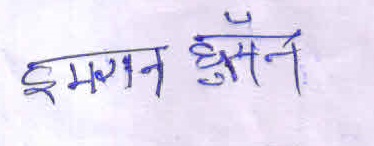 इमरान हुसैन